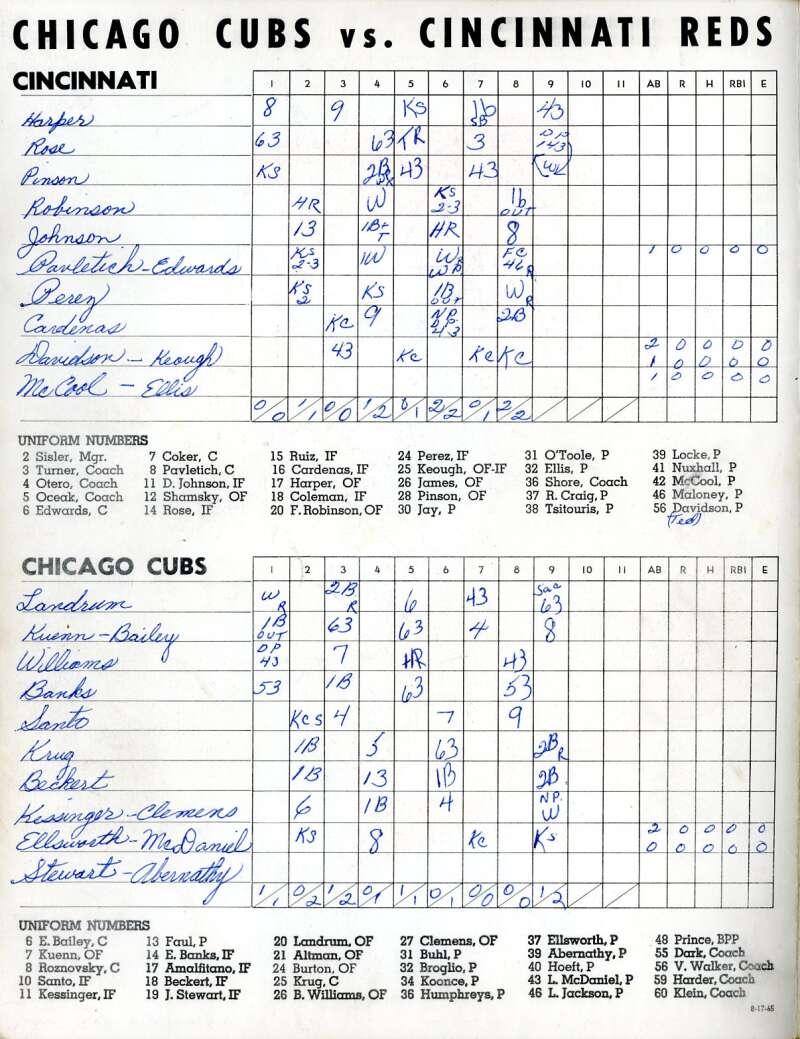 CHICAGO CUBS vs. CINCINNATI REDS
CINCINNATI 1 2 3 4 5 6 7 8 9 10 11 AB R H RBI E
Harper 8 9 KS 1b SB 43
Rose 63 63 KR 3
Pinson KS 2B 43 43 W
Robinson HR W KS 2-3 1b OUT
Johnson 13 1B+ T HR 8
Pavletich-Edwards KS 2-3 IW W WP FC 46 R 1 0 0 0 0
Perez KS 2 KS 1B OUT W R
Cardenas KC 9 NP. 43 2B
Davidson - Keough 43 KC KC KC 2 0 0 0 0
1 0 0 0 0
McCool - Ellis 1 0 0 0 0
0/0 1/1 0/0 1/2 0/1 2/2 0/1 2/2
UNIFORM NUMBERS
2 Sisler, Mgr. 7 Coker, C 15 Ruiz, IF 24 Perez, IF 31 O'Toole, P 39 Locke, P
3 Turner, Coach 8 Pavletich, C 16 Cardenas, IF 25 Keough, OF-IF 32 Ellis, P 41 Nuxhall, P
4 Otero, Coach 11 D. Johnson, IF 17 Harper, OF 26 James, OF 36 Shore, Coach 42 McCool, P
5 Oceak, Coach 12 Shamsky, OF 18 Coleman, IF 28 Pinson, OF 37 R. Craig, P 46 Maloney, P
6 Edwards, C 14 Rose, IF 20 F. Robinson, OF 30 Jay, P 38 Tsitouris, P 56 Davidson, P
(Ted)
CHICAGO CUBS 1 2 3 4 5 6 7 8 9 10 11 AB R H RBI E
Landrum W R 2B R 6 43 Sac 63
Kuenn-Bailey 1B OUT 63 63 4 8
Williams DP 43 7 HR 43
Banks 53 1B 63 53
Santo KCS 4 7 9
Krug 1B 5 63 2B R
Beckert 1B 13 1B 2B
Kessinger-Clemens 6 1B 4 NP. W
Ellsworth-McDaniel KS 8 KC KS 2 0 0 0 0
0 0 0 0 0
Stewart-Abernathy
1/1 0/2 1/2 0/1 1/1 0/1 0/0 0/0 1/2
UNIFORM NUMBERS
6 E. Bailey, C 13 Faul, P 20 Landrum, OF 27 Clemens, OF 37 Ellsworth, P 48 Prince, BPP
7 Kuenn, OF 14 E. Banks, IF 21 Altman, OF 31 Buhl, P 39 Abernathy, P 55 Dark, Coach
8 Roznovsky, C 17 Amalfitano, IF 24 Burton, OF 32 Broglio, P 40 Hoeft, P 56 V. Walker, Coach
10 Santo, IF 18 Beckert, IF 25 Krug, C 34 Koonce, P 43 L. McDaniel, P 59 Harder, Coach
11 Kessinger, IF 19 J. Stewart, IF 26 B. Williams, OF 36 Humphreys, P 46 L. Jackson, P 60 Klein, Coach
8-17-65